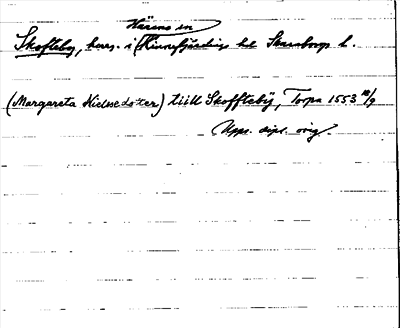 Härene sn
Skofteby, herg. i (Kinnefjärdings hd Skaraborgs l.
(Margareta Nielssedotter) till Skoffteby, Torpa 1553 10/9
Upps. dipl. orig.